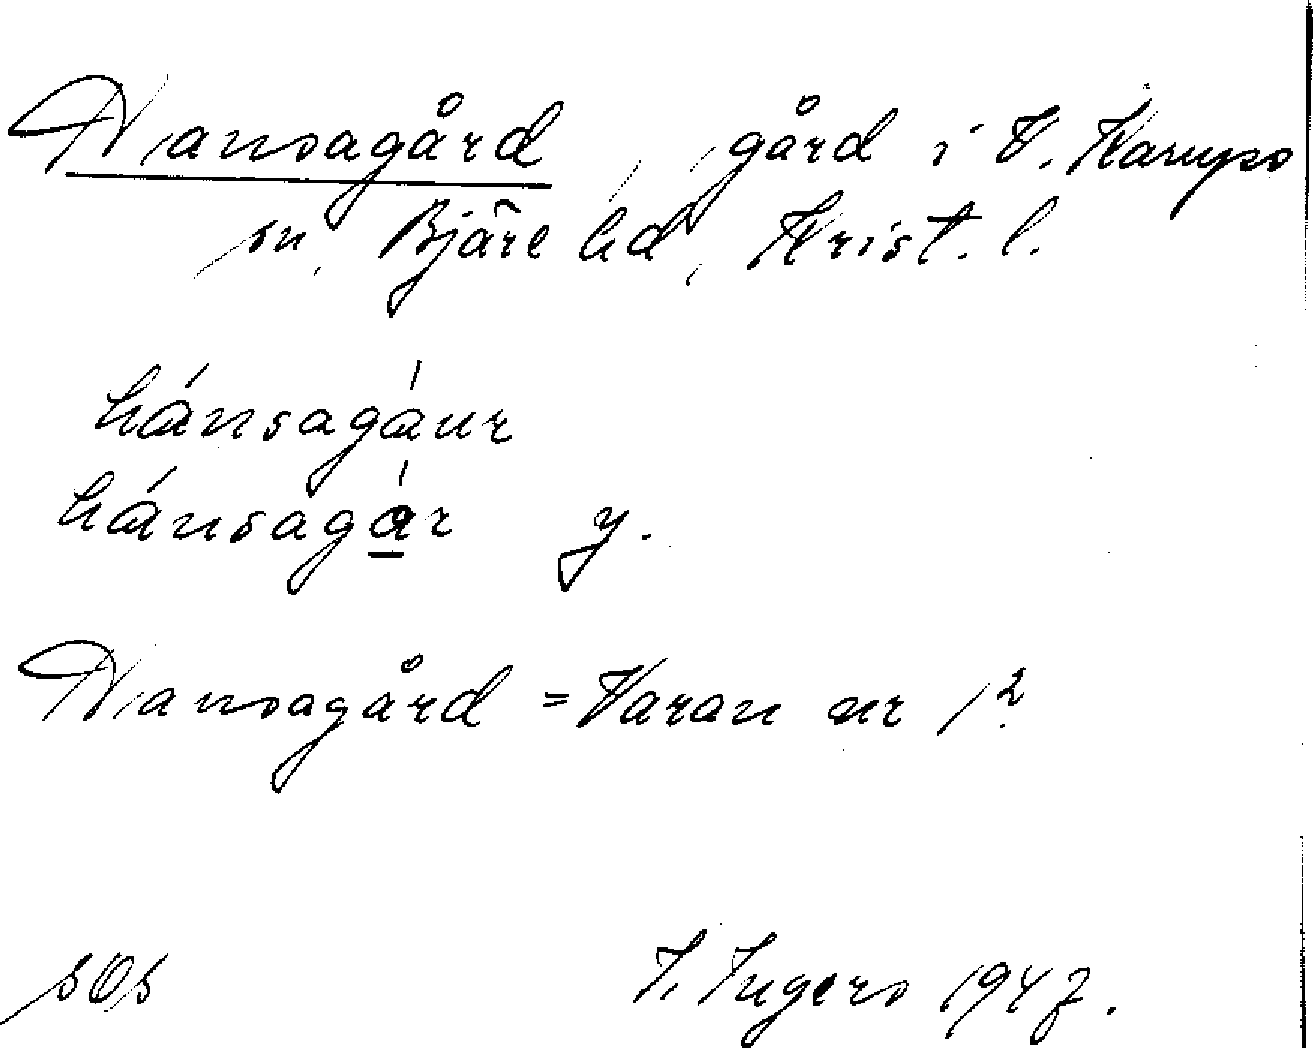 Hansagård, gård i V. Karups
sn, Bjäre hd, Krist. l.
hánsagáur
hánsagár y.
Hansagård = Varan nr 1²
sos I. Ingers 1947.